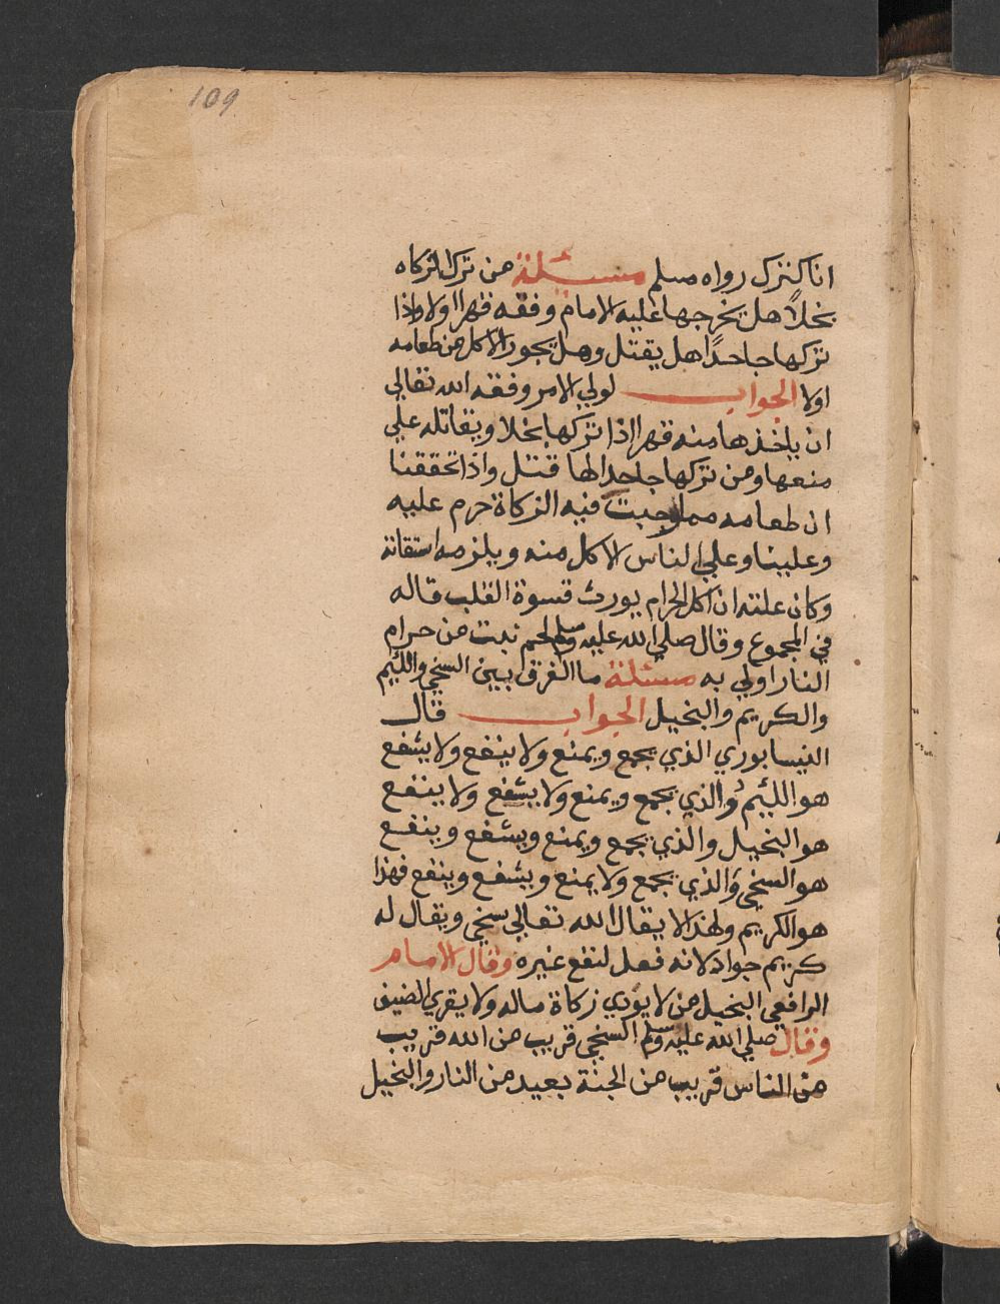 109
انا كنزك رواه مسلم مسئلة من ترك الزكاه
بخلاً هل يخرجها عليه الامام وفقه قهرا اولا واذا
تركها جاحدًا هل يقتل وهل يجوز الاكل من طعامه
اولا الجواب لولي الامر وفقه الله تعالى
ان ياخذها منه قهرا اذا تركها بخلا ويقاتله علي
منعها ومن تركها جاحدا لها قتل واذا تحققنا
ان طعامه مما وجبت فيه الزكاة حرم عليه
وعلينا وعلي الناس الاكل منه ويلزمه
وكان علته ان اكل الحرام يورث قسوة القلب قاله
في المجموع وقال صلي الله عليه وسلم لحم نبت من حرام
النار اولي به مسئلة ما الفرق بين السخي واللئيم
والكريم والبخيل الجواب قال
النيسابوري الذي يجمع ويمنع ولا ينفع ولا يشفع
هو اللئيم والذي يجمع ويمنع ولا يشفع ولا ينفع
هو البخيل والذي يجمع ويمنع ويشفع وينفع
هو السخي والذي يجمع ولا يمنع ويشفع وينفع فهذا
هو الكريم ولهذا لا يقال الله تعالي سخي ويقال له
كريم جواد لانه فعل لنفع غيره وقال الامام
الرافعي البخيل من لا يؤدي زكاة ماله ولا يقري الضيف
وقال صلي الله عليه وسلم السخي قريب من الله قريب
من الناس قريب من الجنة بعيد من النار والبخيل